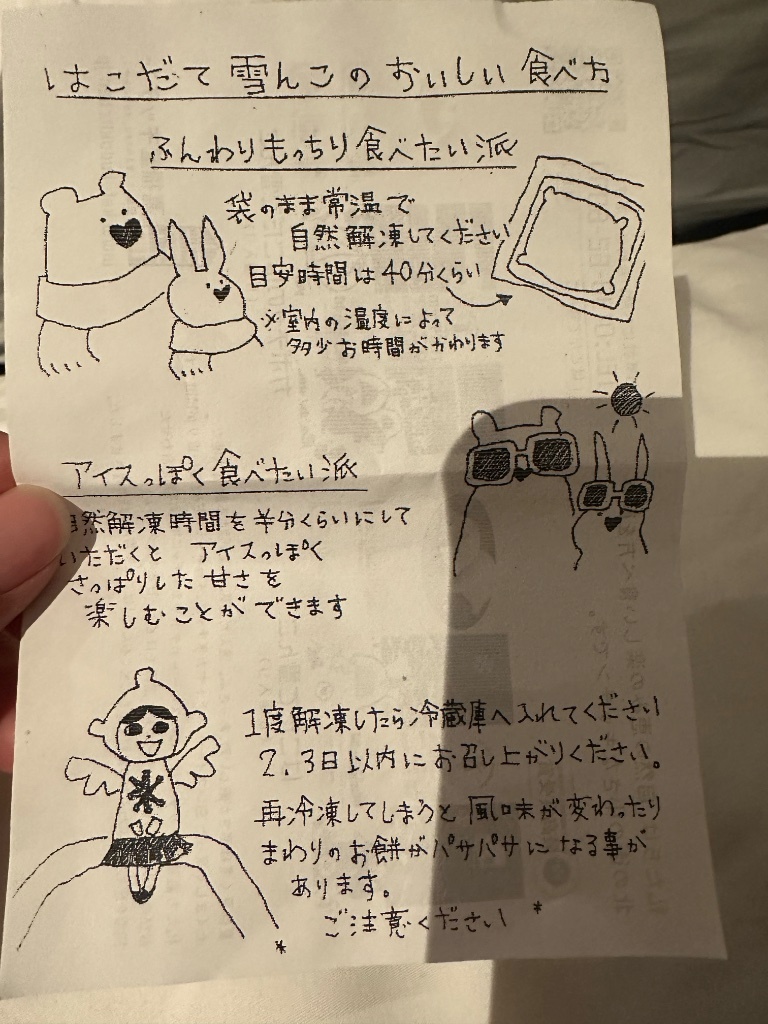 はこだて雪んこのおいしい食べ方
ふんわりもっちり食べたい派
袋のまま常温で
自然解凍してください
目安時間は40分くらい
※室内の温度によって
多少お時間がかわります
アイスっぽく食べたい派
自然解凍時間を半分くらいにして
いただくと アイスっぽく
さっぱりした甘さを
楽しむことができます
1度解凍したら冷蔵庫へ入れてください
2、3日以内にお召し上がりください。
再冷凍してしまうと風味が変わったり
まわりのお餅がパサパサになる事が
あります。
ご注意ください *
*